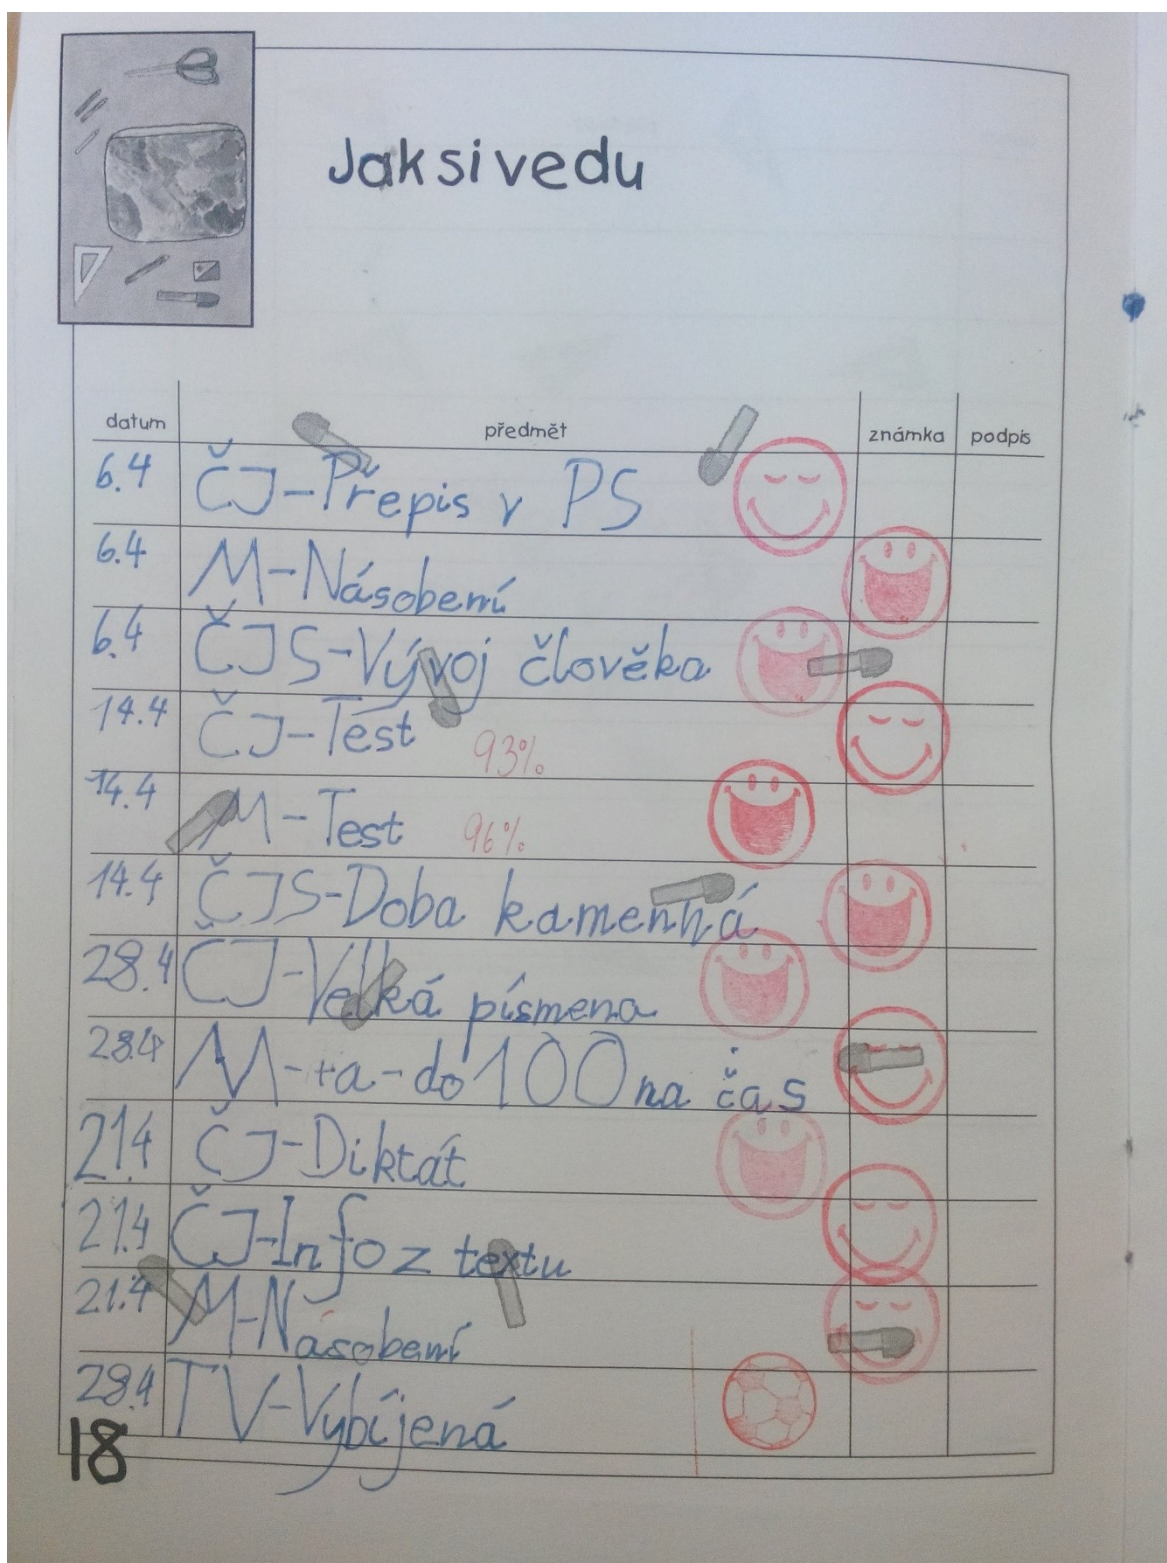 Jak si vedu
datum předmět známka podpis
6.4 ČJ-Přepis v PS
6.4 M-Násobení
6.4 ČJS-Vývoj člověka
14.4 ČJ-Test 93%
14.4 M-Test 96%
14.4 ČJS-Doba kamenná
28.4 ČJ-Velká písmena
28.4 M-+a-do 100 na čas
21.4 ČJ-Diktát
21.4 ČJ-Info z textu
21.4 M-Násobení
28.4 TV-Vybíjená
18